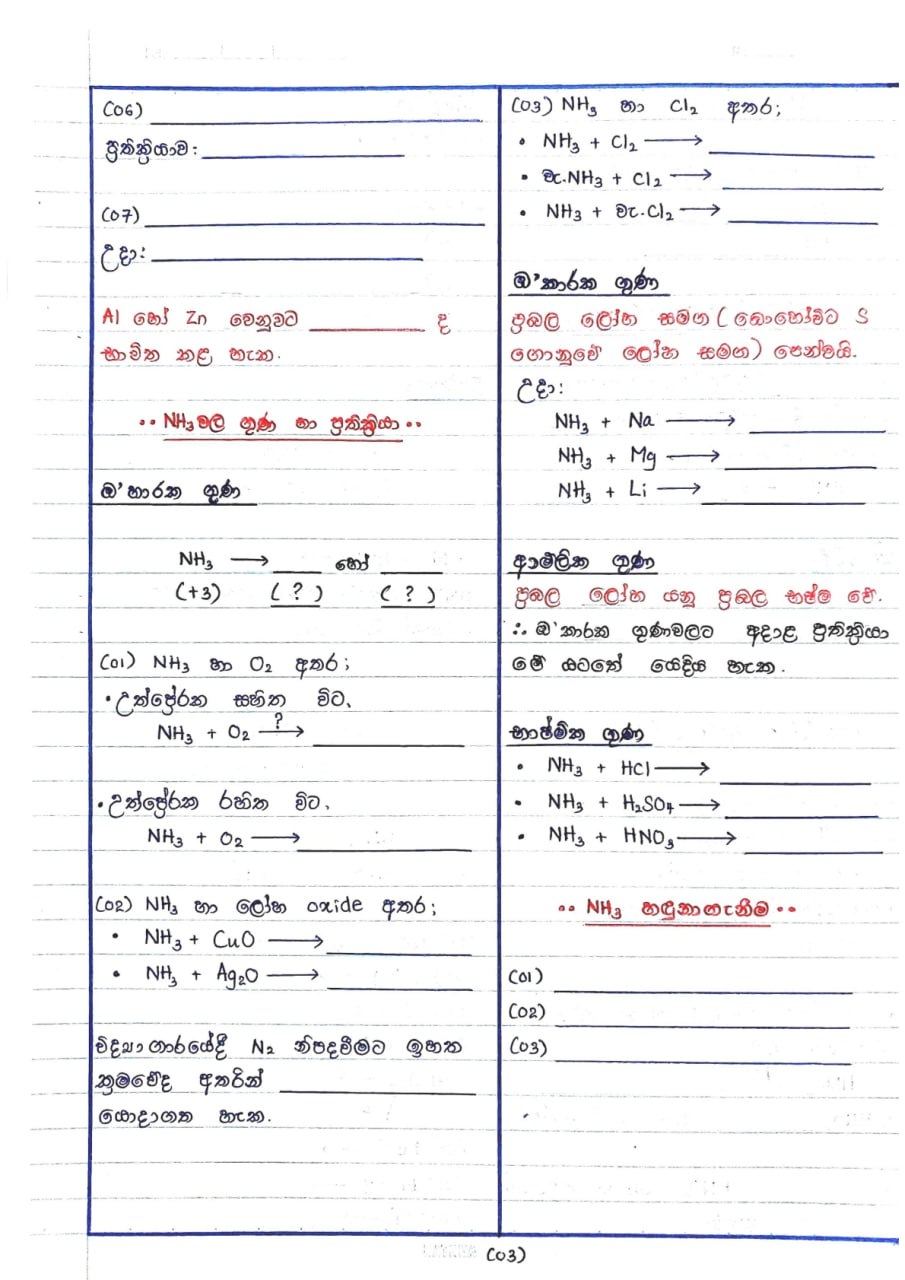 (06) ____________
ප්‍රතික්‍රියාව: ____________
(07) ____________
උදා: ____________
Al හෝ Zn වෙනුවට ____________ ද
භාවිත කළ හැක.
•• NH₃ වල ගුණ හා ප්‍රතික්‍රියා ••
ඔ'හාරක ගුණ
NH₃ ⟶ ____ හෝ ____
(+3) (?) (?)
(01) NH₃ හා O₂ අතර;
• උත්ප්‍රේරක සහිත විට,
NH₃ + O₂ —?→ ____________
• උත්ප්‍රේරක රහිත විට,
NH₃ + O₂ ⟶ ____________
(02) NH₃ හා ලෝහ oxide අතර;
• NH₃ + CuO ⟶ ____________
• NH₃ + Ag₂O ⟶ ____________
විද්‍යාගාරයේදී N₂ නිපදවීමට ඉහත
ක්‍රමවේද අතරින් ____________
යොදාගත හැක.
(03) NH₃ හා Cl₂ අතර;
• NH₃ + Cl₂ ⟶ ____________
• වැ.NH₃ + Cl₂ ⟶ ____________
• NH₃ + වැ.Cl₂ ⟶ ____________
ඔ'කාරක ගුණ
ප්‍රබල ලෝහ සමග (බොහෝවිට S
ගොනුවේ ලෝහ සමග) පෙන්වයි.
උදා:
NH₃ + Na ⟶ ____________
NH₃ + Mg ⟶ ____________
NH₃ + Li ⟶ ____________
ආම්ලික ගුණ
ප්‍රබල ලෝහ යනු ප්‍රබල භෂ්ම වේ.
∴ ඔ'කාරක ගුණවලට අදාළ ප්‍රතික්‍රියා
මේ යටතේ යෙදිය හැක.
භාෂ්මික ගුණ
• NH₃ + HCl ⟶ ____________
• NH₃ + H₂SO₄ ⟶ ____________
• NH₃ + HNO₃ ⟶ ____________
•• NH₃ හඳුනාගැනීම ••
(01) ____________
(02) ____________
(03) ____________
(03)